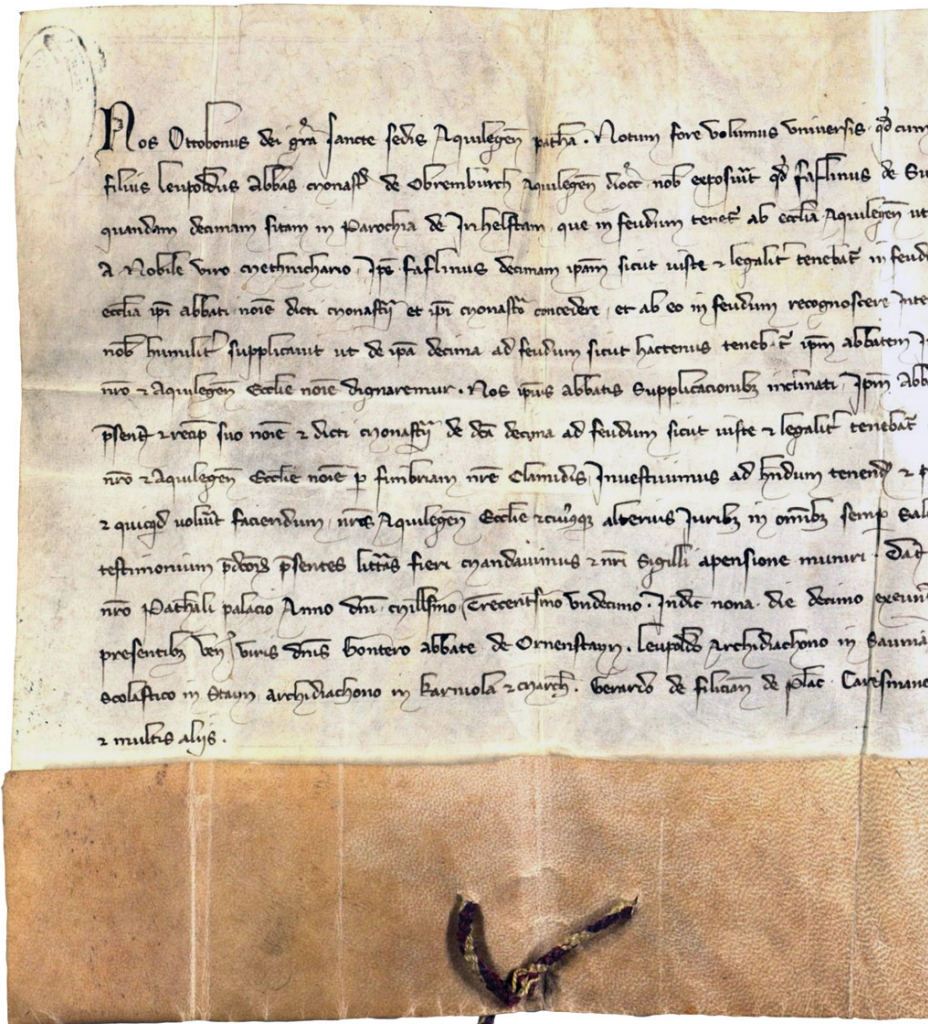 Nos Ottobonus dei gra sancte sedis Aquilegen patha . Notum fore volumus universis . qd cum
filius leupoldus abbas monastij de Obremburch Aquilegen dioc nob exposuit qd faslinus de
quandam decimam sitam in Parochia de que in feudum tenet ab ecclia Aquilegen ut
A Nobile viro Ipe faslinus decimam ipam sicut iuste et legalit tenebat in
ecclia ipi abbati noie dicti monastij et ipi monasto concedere , et ab eo in feudum recognoscere
nob humilit supplicavit ut de ipa decima ad feudum sicut hactenus teneb ipm abbatem
nro et Aquilegen Ecclie noie dignaremur . Nos ipius abbatis Supplicacionibz inclinati , Ipm
psent et recip suo noie et dicti monastij de dca decima ad feudum sicut iuste et legalit tenebat
nro et Aquilegen Ecclie noie p fimbriam nre Clamidis , Investivimus ad hndum tenend et
et quicqd voluit faciendum , Aquilegen Ecclie et cuiusqz alterius Iuribz in omibz semp
testimonium psentes litteras fieri mandavimus et nri Sigilli apensione muniri . Dat
nro Pathali palacio Anno dni millsimo Trecentesimo undecimo . Indic nona . die decimo
presentibz ven viris dnis Gontero abbate de . leupoldo Archidiachono in
scolastico in Stayn archidiachono in karniola et march . Gerardo de de
et multis aliis .